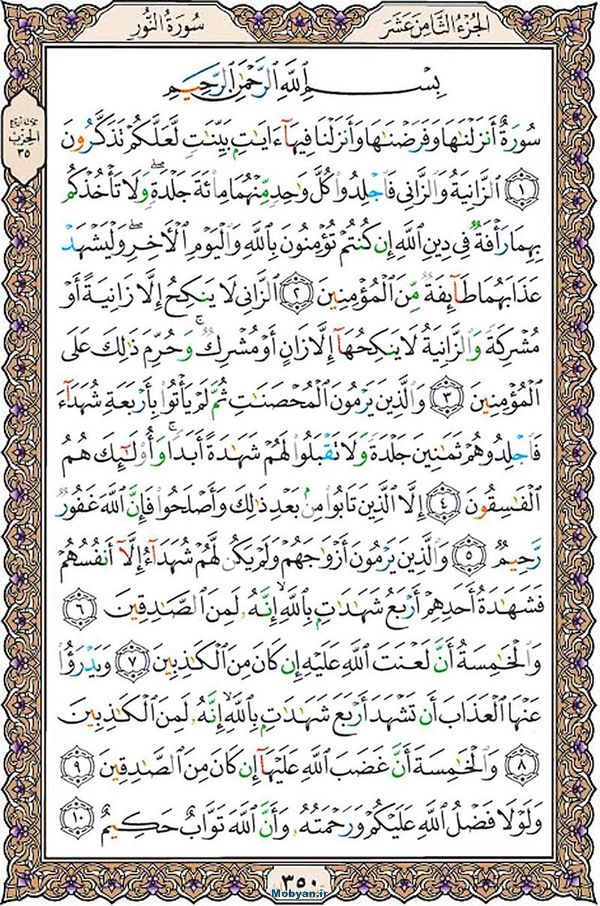 الجزء الثامن عشر
سورة النور
ثلاثة أرباع
الحزب
٣٥
بِسْمِ اللَّهِ الرَّحْمَٰنِ الرَّحِيمِ
سُورَةٌ أَنزَلْنَٰهَا وَفَرَضْنَٰهَا وَأَنزَلْنَا فِيهَآ ءَايَٰتٍۭ بَيِّنَٰتٍ لَّعَلَّكُمْ تَذَكَّرُونَ
١ الزَّانِيَةُ وَالزَّانِى فَاجْلِدُوا كُلَّ وَٰحِدٍ مِّنْهُمَا مِا۟ئَةَ جَلْدَةٍ ۖ وَلَا تَأْخُذْكُم
بِهِمَا رَأْفَةٌ فِى دِينِ اللَّهِ إِن كُنتُمْ تُؤْمِنُونَ بِاللَّهِ وَالْيَوْمِ الْأَخِرِ ۖ وَلْيَشْهَدْ
عَذَابَهُمَا طَآئِفَةٌ مِّنَ الْمُؤْمِنِينَ ٢ الزَّانِى لَا يَنكِحُ إِلَّا زَانِيَةً أَوْ
مُشْرِكَةً وَالزَّانِيَةُ لَا يَنكِحُهَآ إِلَّا زَانٍ أَوْ مُشْرِكٌ ۚ وَحُرِّمَ ذَٰلِكَ عَلَى
الْمُؤْمِنِينَ ٣ وَالَّذِينَ يَرْمُونَ الْمُحْصَنَٰتِ ثُمَّ لَمْ يَأْتُوا بِأَرْبَعَةِ شُهَدَآءَ
فَاجْلِدُوهُمْ ثَمَٰنِينَ جَلْدَةً وَلَا تَقْبَلُوا لَهُمْ شَهَٰدَةً أَبَدًا ۚ وَأُو۟لَٰٓئِكَ هُمُ
الْفَٰسِقُونَ ٤ إِلَّا الَّذِينَ تَابُوا مِنۢ بَعْدِ ذَٰلِكَ وَأَصْلَحُوا فَإِنَّ اللَّهَ غَفُورٌ
رَّحِيمٌ ٥ وَالَّذِينَ يَرْمُونَ أَزْوَٰجَهُمْ وَلَمْ يَكُن لَّهُمْ شُهَدَآءُ إِلَّآ أَنفُسُهُمْ
فَشَهَٰدَةُ أَحَدِهِمْ أَرْبَعُ شَهَٰدَٰتٍۭ بِاللَّهِ ۙ إِنَّهُۥ لَمِنَ الصَّٰدِقِينَ ٦
وَالْخَٰمِسَةُ أَنَّ لَعْنَتَ اللَّهِ عَلَيْهِ إِن كَانَ مِنَ الْكَٰذِبِينَ ٧ وَيَدْرَؤُا
عَنْهَا الْعَذَابَ أَن تَشْهَدَ أَرْبَعَ شَهَٰدَٰتٍۭ بِاللَّهِ ۙ إِنَّهُۥ لَمِنَ الْكَٰذِبِينَ
٨ وَالْخَٰمِسَةَ أَنَّ غَضَبَ اللَّهِ عَلَيْهَآ إِن كَانَ مِنَ الصَّٰدِقِينَ ٩
وَلَوْلَا فَضْلُ اللَّهِ عَلَيْكُمْ وَرَحْمَتُهُۥ وَأَنَّ اللَّهَ تَوَّابٌ حَكِيمٌ ١٠
٣٥٠
Mobyan.ir